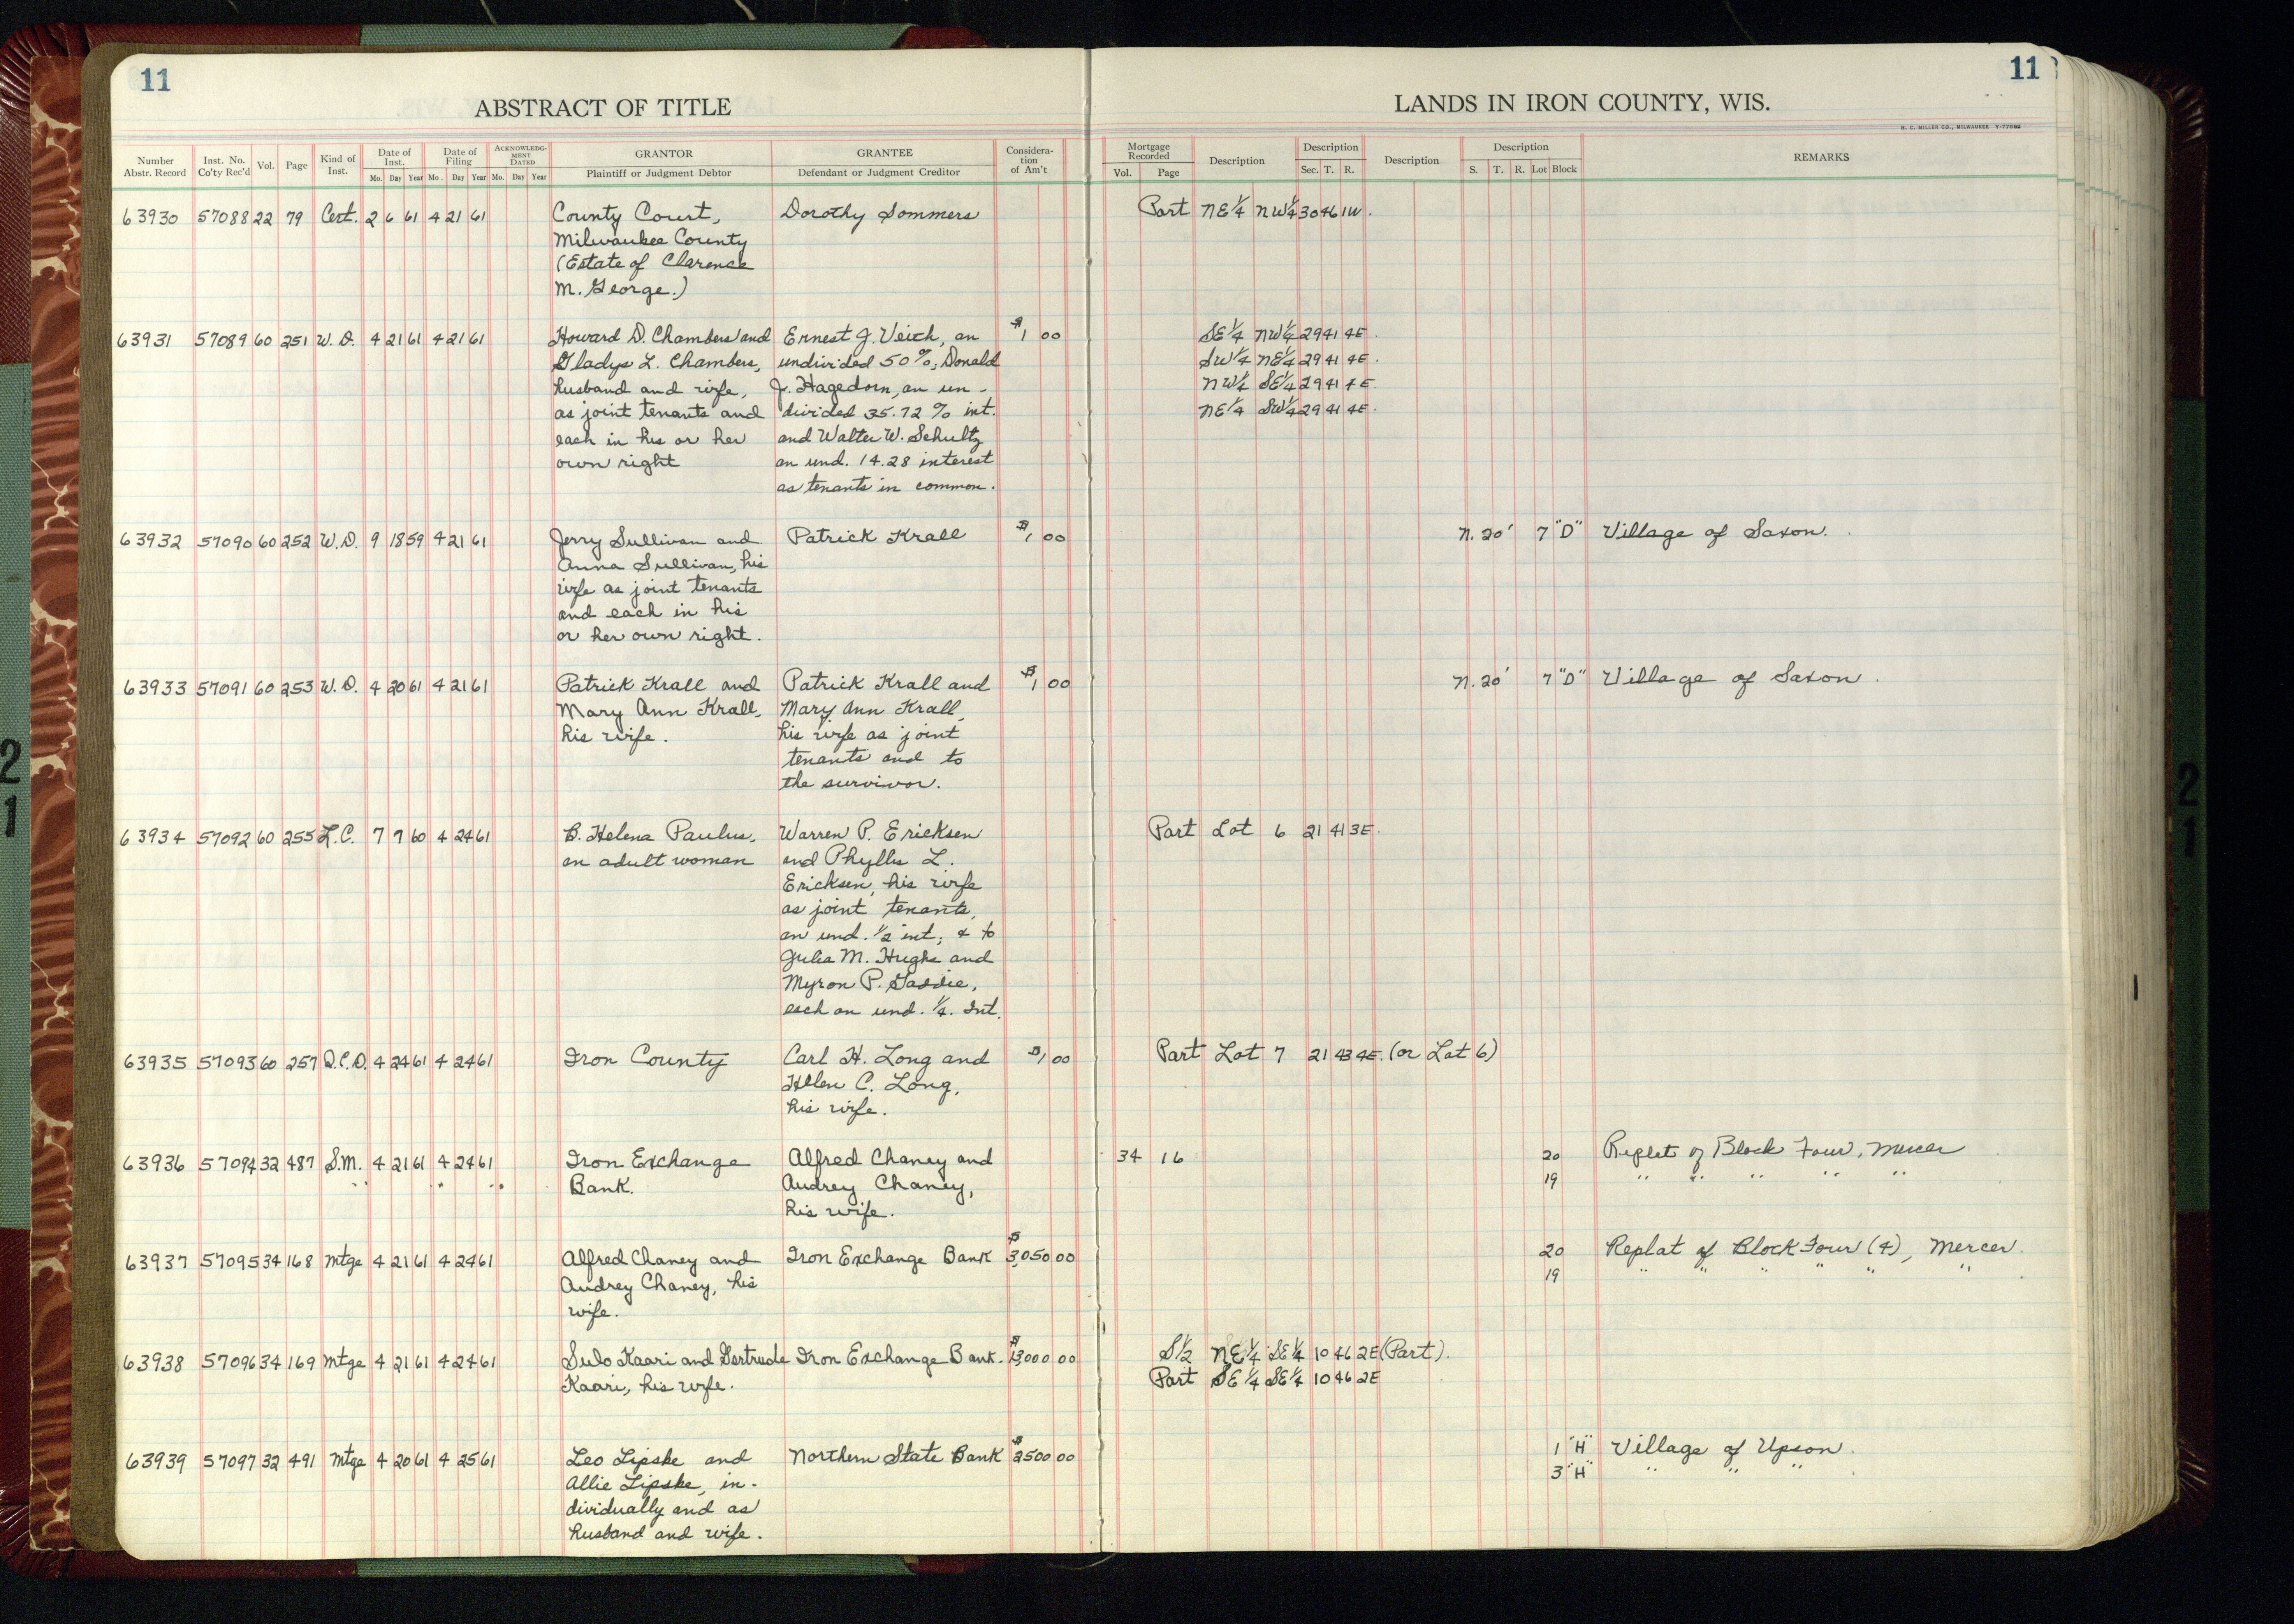 11
11
ABSTRACT OF TITLE
LANDS IN IRON COUNTY, WIS.
H. C. MILLER CO., MILWAUKEE
Number Abstr. Record Inst. No. Co'ty Rec'd Vol. Page Kind of Inst. Date of Inst. Date of Filing ACKNOWLEDGMENT DATED GRANTOR GRANTEE Consideration of Am't Mortgage Recorded Description Description Description Description REMARKS
Mo. Day Year Mo. Day Year Mo. Day Year Plaintiff or Judgment Debtor Defendant or Judgment Creditor Vol. Page Sec. T. R. S. T. R. Lot Block
63930 57088 22 79 Cert. 2 6 61 4 21 61 County Court, Dorothy Sommers Part NE¼ NW¼ 30 46 1W.
Milwaukee County
(Estate of Clarence
M. George.)
63931 57089 60 251 W. D. 4 21 61 4 21 61 Howard D. Chambers and Ernest J. Veich, an $1 00 SE¼ NW¼ 29 41 4E.
Gladys L. Chambers, undivided 50%, Donald SW¼ NE¼ 29 41 4E.
husband and wife, J. Hagedorn, an un- NW¼ SE¼ 29 41 4E.
as joint tenants and divided 35.72% int. NE¼ SW¼ 29 41 4E.
each in his or her and Walter W. Schultz
own right an und. 14.28 interest
as tenants in common.
63932 57090 60 252 W. D. 9 18 59 4 21 61 Jerry Sullivan and Patrick Krall $1 00 N. 20' 7 "D" Village of Saxon.
Anna Sullivan, his
wife as joint tenants
and each in his
or her own right.
63933 57091 60 253 W. D. 4 20 61 4 21 61 Patrick Krall and Patrick Krall and $1 00 N. 20' 7 "D" Village of Saxon.
Mary Ann Krall, Mary Ann Krall,
his wife. his wife as joint
tenants and to
the survivor.
63934 57092 60 255 L.C. 7 7 60 4 24 61 B. Helena Paulus, Warren P. Ericksen Part Lot 6 21 41 3E.
an adult woman and Phyllis L.
Ericksen, his wife
as joint tenants,
an und. ½ int; & to
Julia M. Hughs and
Myron P. Gaddie,
each an und. ¼. Int.
63935 57093 60 257 Q.C.D. 4 24 61 4 24 61 Iron County Carl H. Long and $1 00 Part Lot 7 21 43 4E. (or Lot 6)
Helen C. Long,
his wife.
63936 57094 32 487 S.M. 4 21 61 4 24 61 Iron Exchange Alfred Chaney and 34 16 20 Replat of Block Four, Mercer
Bank. Audrey Chaney, 19 " " " " "
his wife.
63937 57095 34 168 Mtge 4 21 61 4 24 61 Alfred Chaney and Iron Exchange Bank $3,050 00 20 Replat of Block Four (4), Mercer.
Audrey Chaney, his 19 " " " " " "
wife.
63938 57096 34 169 Mtge 4 21 61 4 24 61 Sulo Kaari and Gertrude Iron Exchange Bank. $13,000 00 S½ NE¼ SE¼ 10 46 2E (Part).
Kaari, his wife. Part SE¼ SE¼ 10 46 2E
63939 57097 32 491 Mtge 4 20 61 4 25 61 Leo Lipske and Northern State Bank $2500 00 1 "H" Village of Upson.
Allie Lipske, in- 3 "H" " " "
dividually and as
husband and wife.
21
21